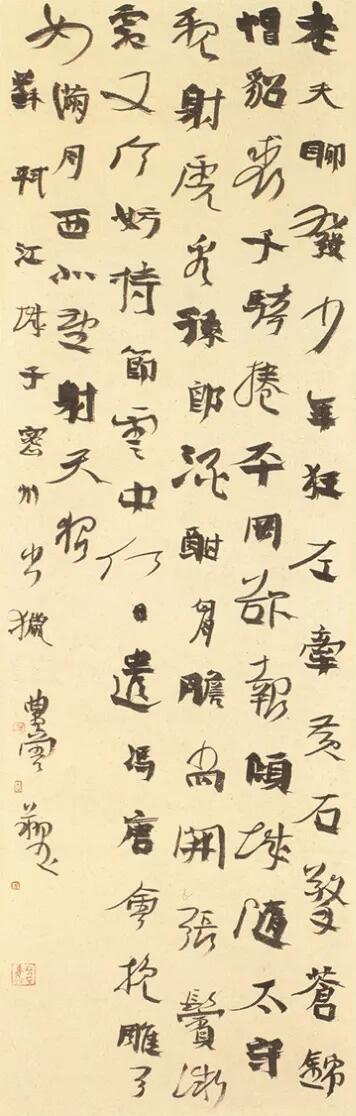 老夫聊發少年狂左牽黃右擎蒼錦
帽貂裘千騎捲平岡欲報傾城隨太守
親射虎看孫郎酒酣胸膽尚開張鬢微
霜又何妨持節雲中何日遣馮唐會挽雕弓
如滿月西北望射天狼
蘇軾江城子密州出獵